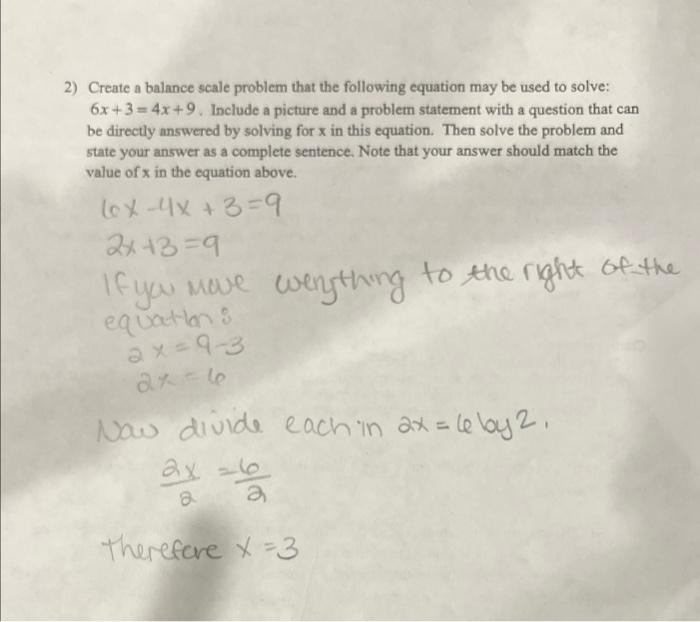 2) Create a balance scale problem that the following equation may be used to solve:
6x + 3 = 4x + 9. Include a picture and a problem statement with a question that can
be directly answered by solving for x in this equation. Then solve the problem and
state your answer as a complete sentence. Note that your answer should match the
value of x in the equation above.
6x - 4x + 3 = 9
2x + 3 = 9
If you move everything to the right of the
equation:
2x = 9 - 3
2x = 6
Now divide each in 2x = 6 by 2.
2x = 6
2 2
therefore x = 3